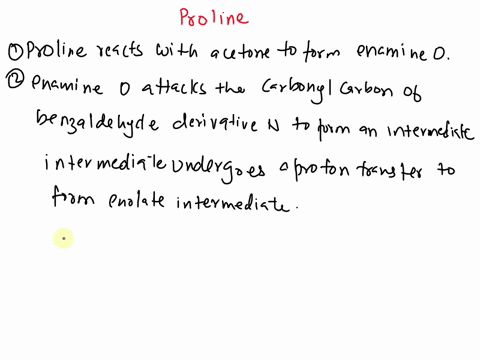 Proline
① Proline reacts with acetone to form enamine O.
② enamine O attacks the Carbonyl Carbon of
benzaldehyde derivative N to form an intermediate
intermediate undergoes a proton transfer to
form enolate intermediate.